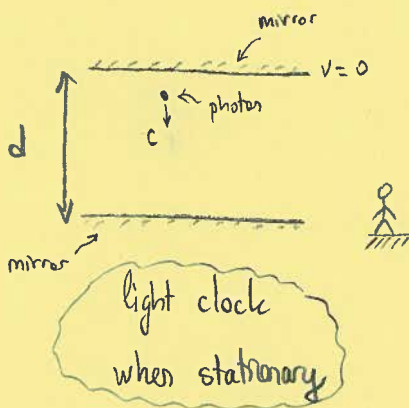 mirror
v = 0
photon
c
d
mirror
light clock
when stationary